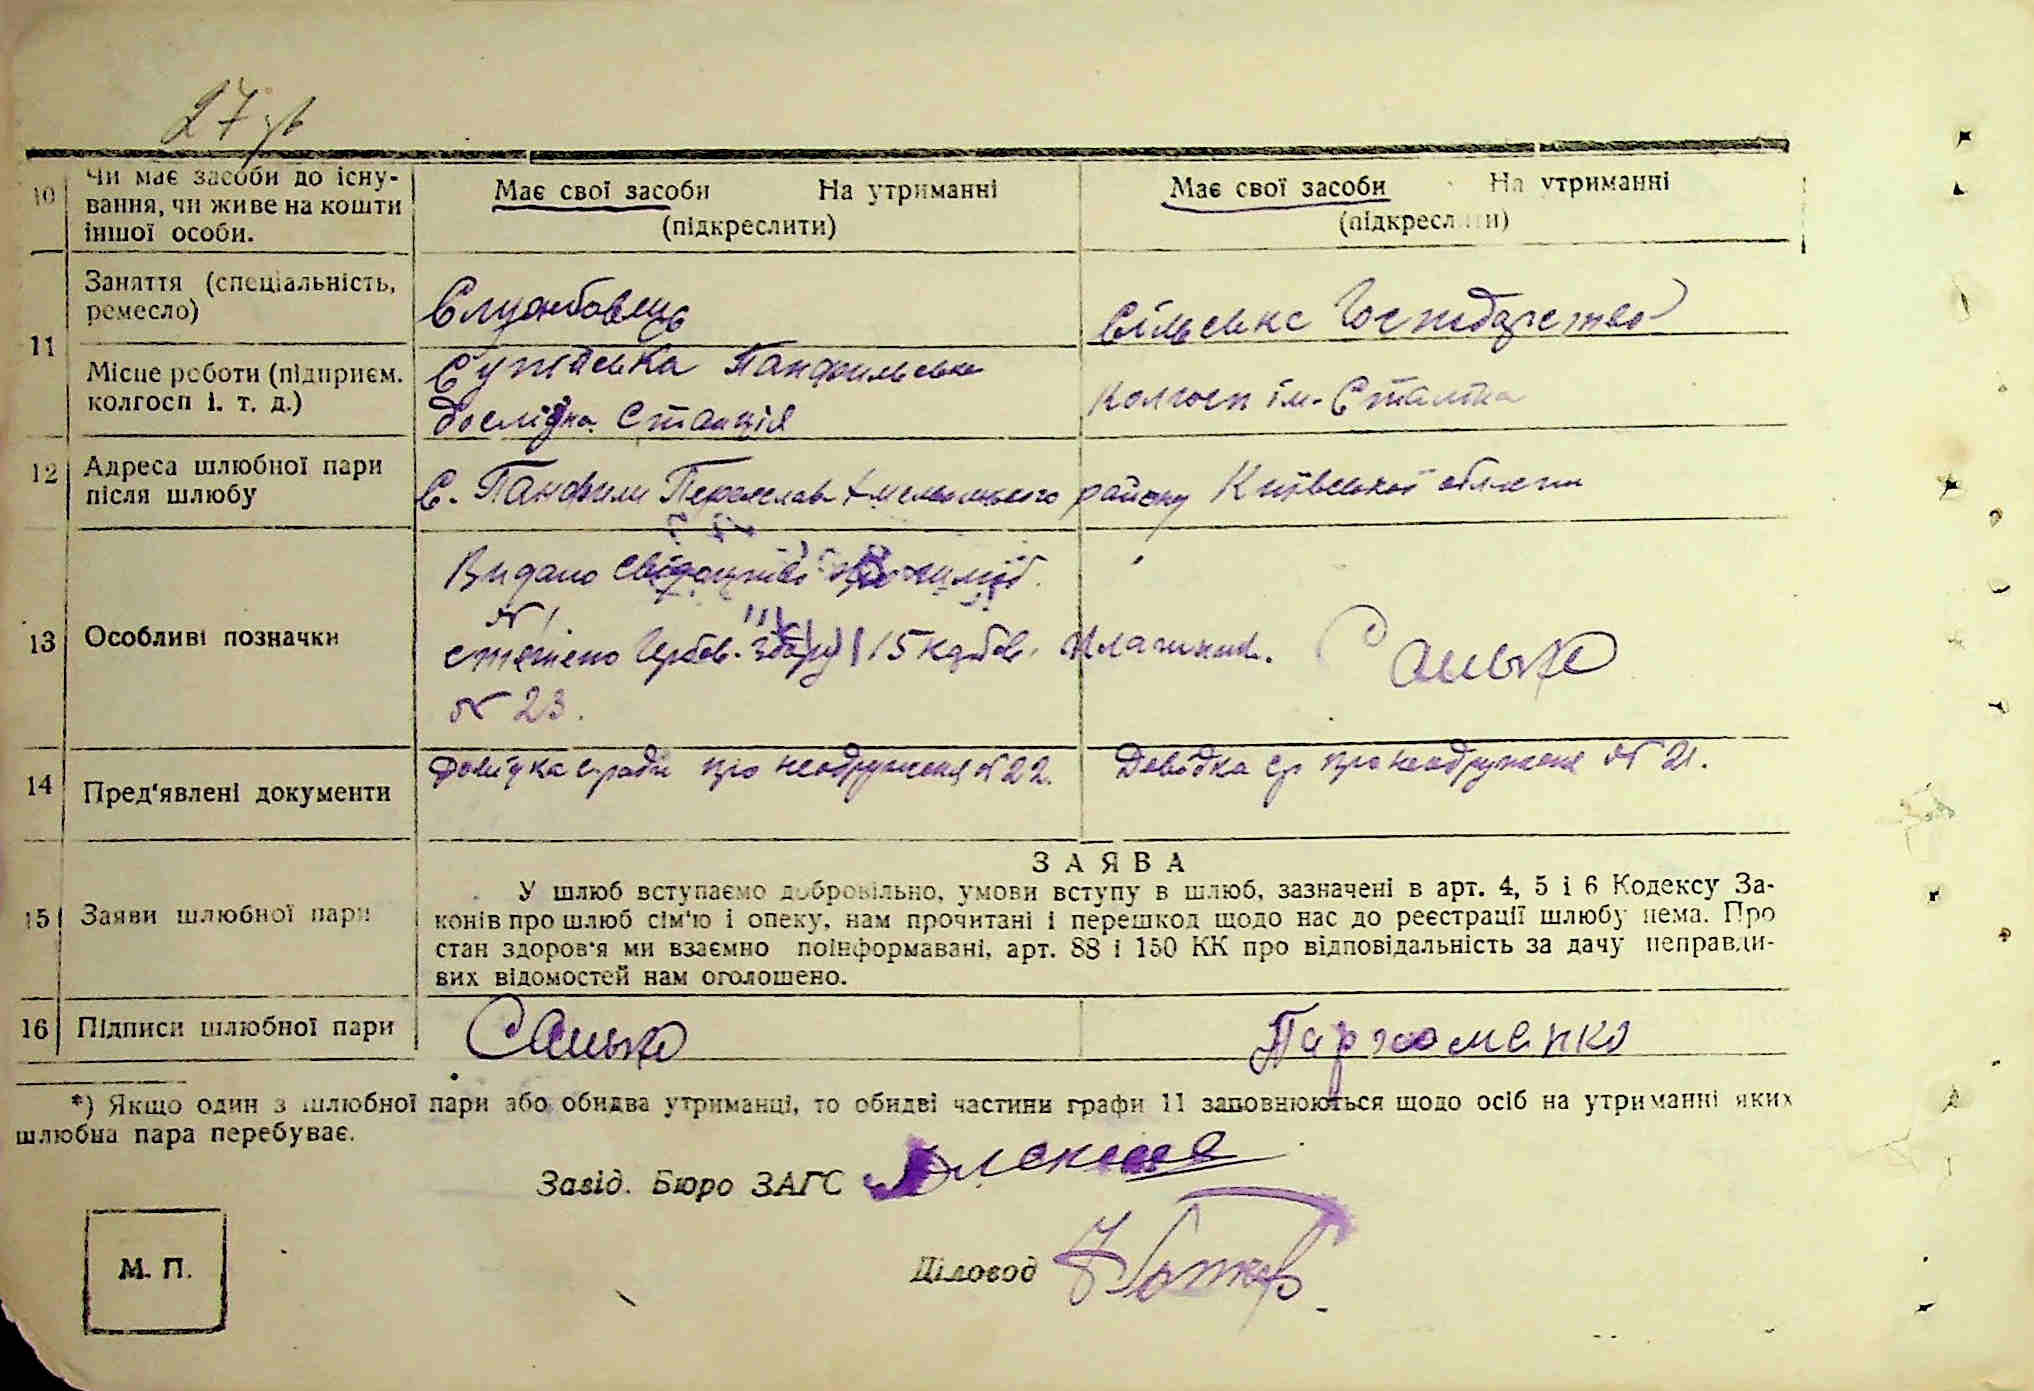 27 зв
10 Чи має засоби до існу-
вання, чи живе на кошти
іншої особи.
Має свої засоби На утриманні
(підкреслити)
Має свої засоби На утриманні
(підкреслити)
11 Заняття (спеціальність,
ремесло)
Службовець
Сільське Господарство
Місце роботи (підприєм.
колгосп і. т. д.)
Панфильська
дослідна Станція
Колгосп ім. Сталіна
12 Адреса шлюбної пари
після шлюбу
С. Панфили Переяслав Хмельницького району Київської області
13 Особливі позначки
Видано
№ 1
Гербов. збору 15 карбов.
№ 23.
Санько
14 Пред'явлені документи
Довідка с/ради про неодруження № 22.
Довідка ср про неодруження № 21.
З А Я В А
15 Заяви шлюбної пари
У шлюб вступаємо добровільно, умови вступу в шлюб, зазначені в арт. 4, 5 і 6 Кодексу За-
конів про шлюб сім'ю і опеку, нам прочитані і перешкод щодо нас до реєстрації шлюбу нема. Про
стан здоров'я ми взаємно поінформавані, арт. 88 і 150 КК про відповідальність за дачу неправди-
вих відомостей нам оголошено.
16 Підписи шлюбної пари
Санько
Пархоменко
*) Якщо один з шлюбної пари або обидва утриманці, то обидві частини графи 11 заповнюються щодо осіб на утриманні яких
шлюбна пара перебуває.
Завід. Бюро ЗАГС
Діловод
М. П.